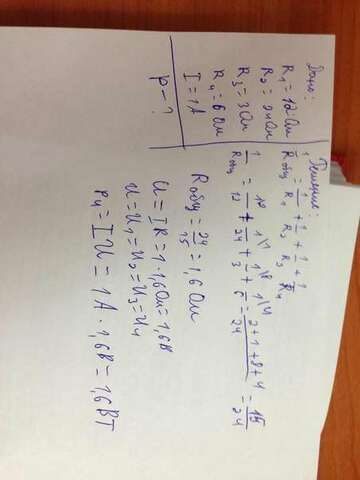 Дано:
R₁ = 12 Ом
R₂ = 24 Ом
R₃ = 3 Ом
R₄ = 6 Ом
I = 1 А
P - ?
Решение:
1/Rобщ = 1/R₁ + 1/R₂ + 1/R₃ + 1/R₄
1/Rобщ = 1\2/12 + 1\1/24 + 1\8/3 + 1\4/6 = 2+1+8+4/24 = 15/24
Rобщ = 24/15 = 1,6 Ом
U = IR = 1 · 1,6 Ом = 1,6 В
U = U₁ = U₂ = U₃ = U₄
P₄ = IU = 1 А · 1,6 В = 1,6 Вт